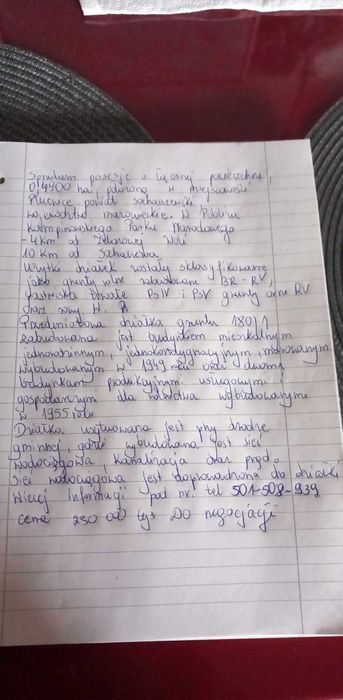 Sprzedam posesję o łącznej powierzchni
0,4900 ha, położoną w miejscowości
powiat sochaczewski
województwo mazowieckie. W Pobliżu
Kampinowskiego Parku Narodowego
- 4 km od Żelazowej Woli
10 km od Sochaczewa
Użytki działek zostały sklasyfikowane
jako grunty rolne zabudowane BR-RV,
pastwiska trwałe PSIV i PSV grunty orne RV
oraz rowy W.
Przedmiotowa działka gruntu 180/1
zabudowana jest budynkiem mieszkalnym
jednorodzinnym, jednokondygnacyjnym, murowanym
wybudowanym w 1949 roku oraz dwoma
budynkami produkcyjnym usługowym i
gospodarczym dla rolnictwa wybudowanym
w 1955 roku
Działka usytuowana jest przy drodze
gminnej, gdzie wybudowana jest sieć
wodociągowa, kanalizacja oraz prąd.
Sieć wodociągowa jest doprowadzona do działki
Więcej informacji pod nr. tel 501-508-939
cena 230 000 tyś DO negocjacji